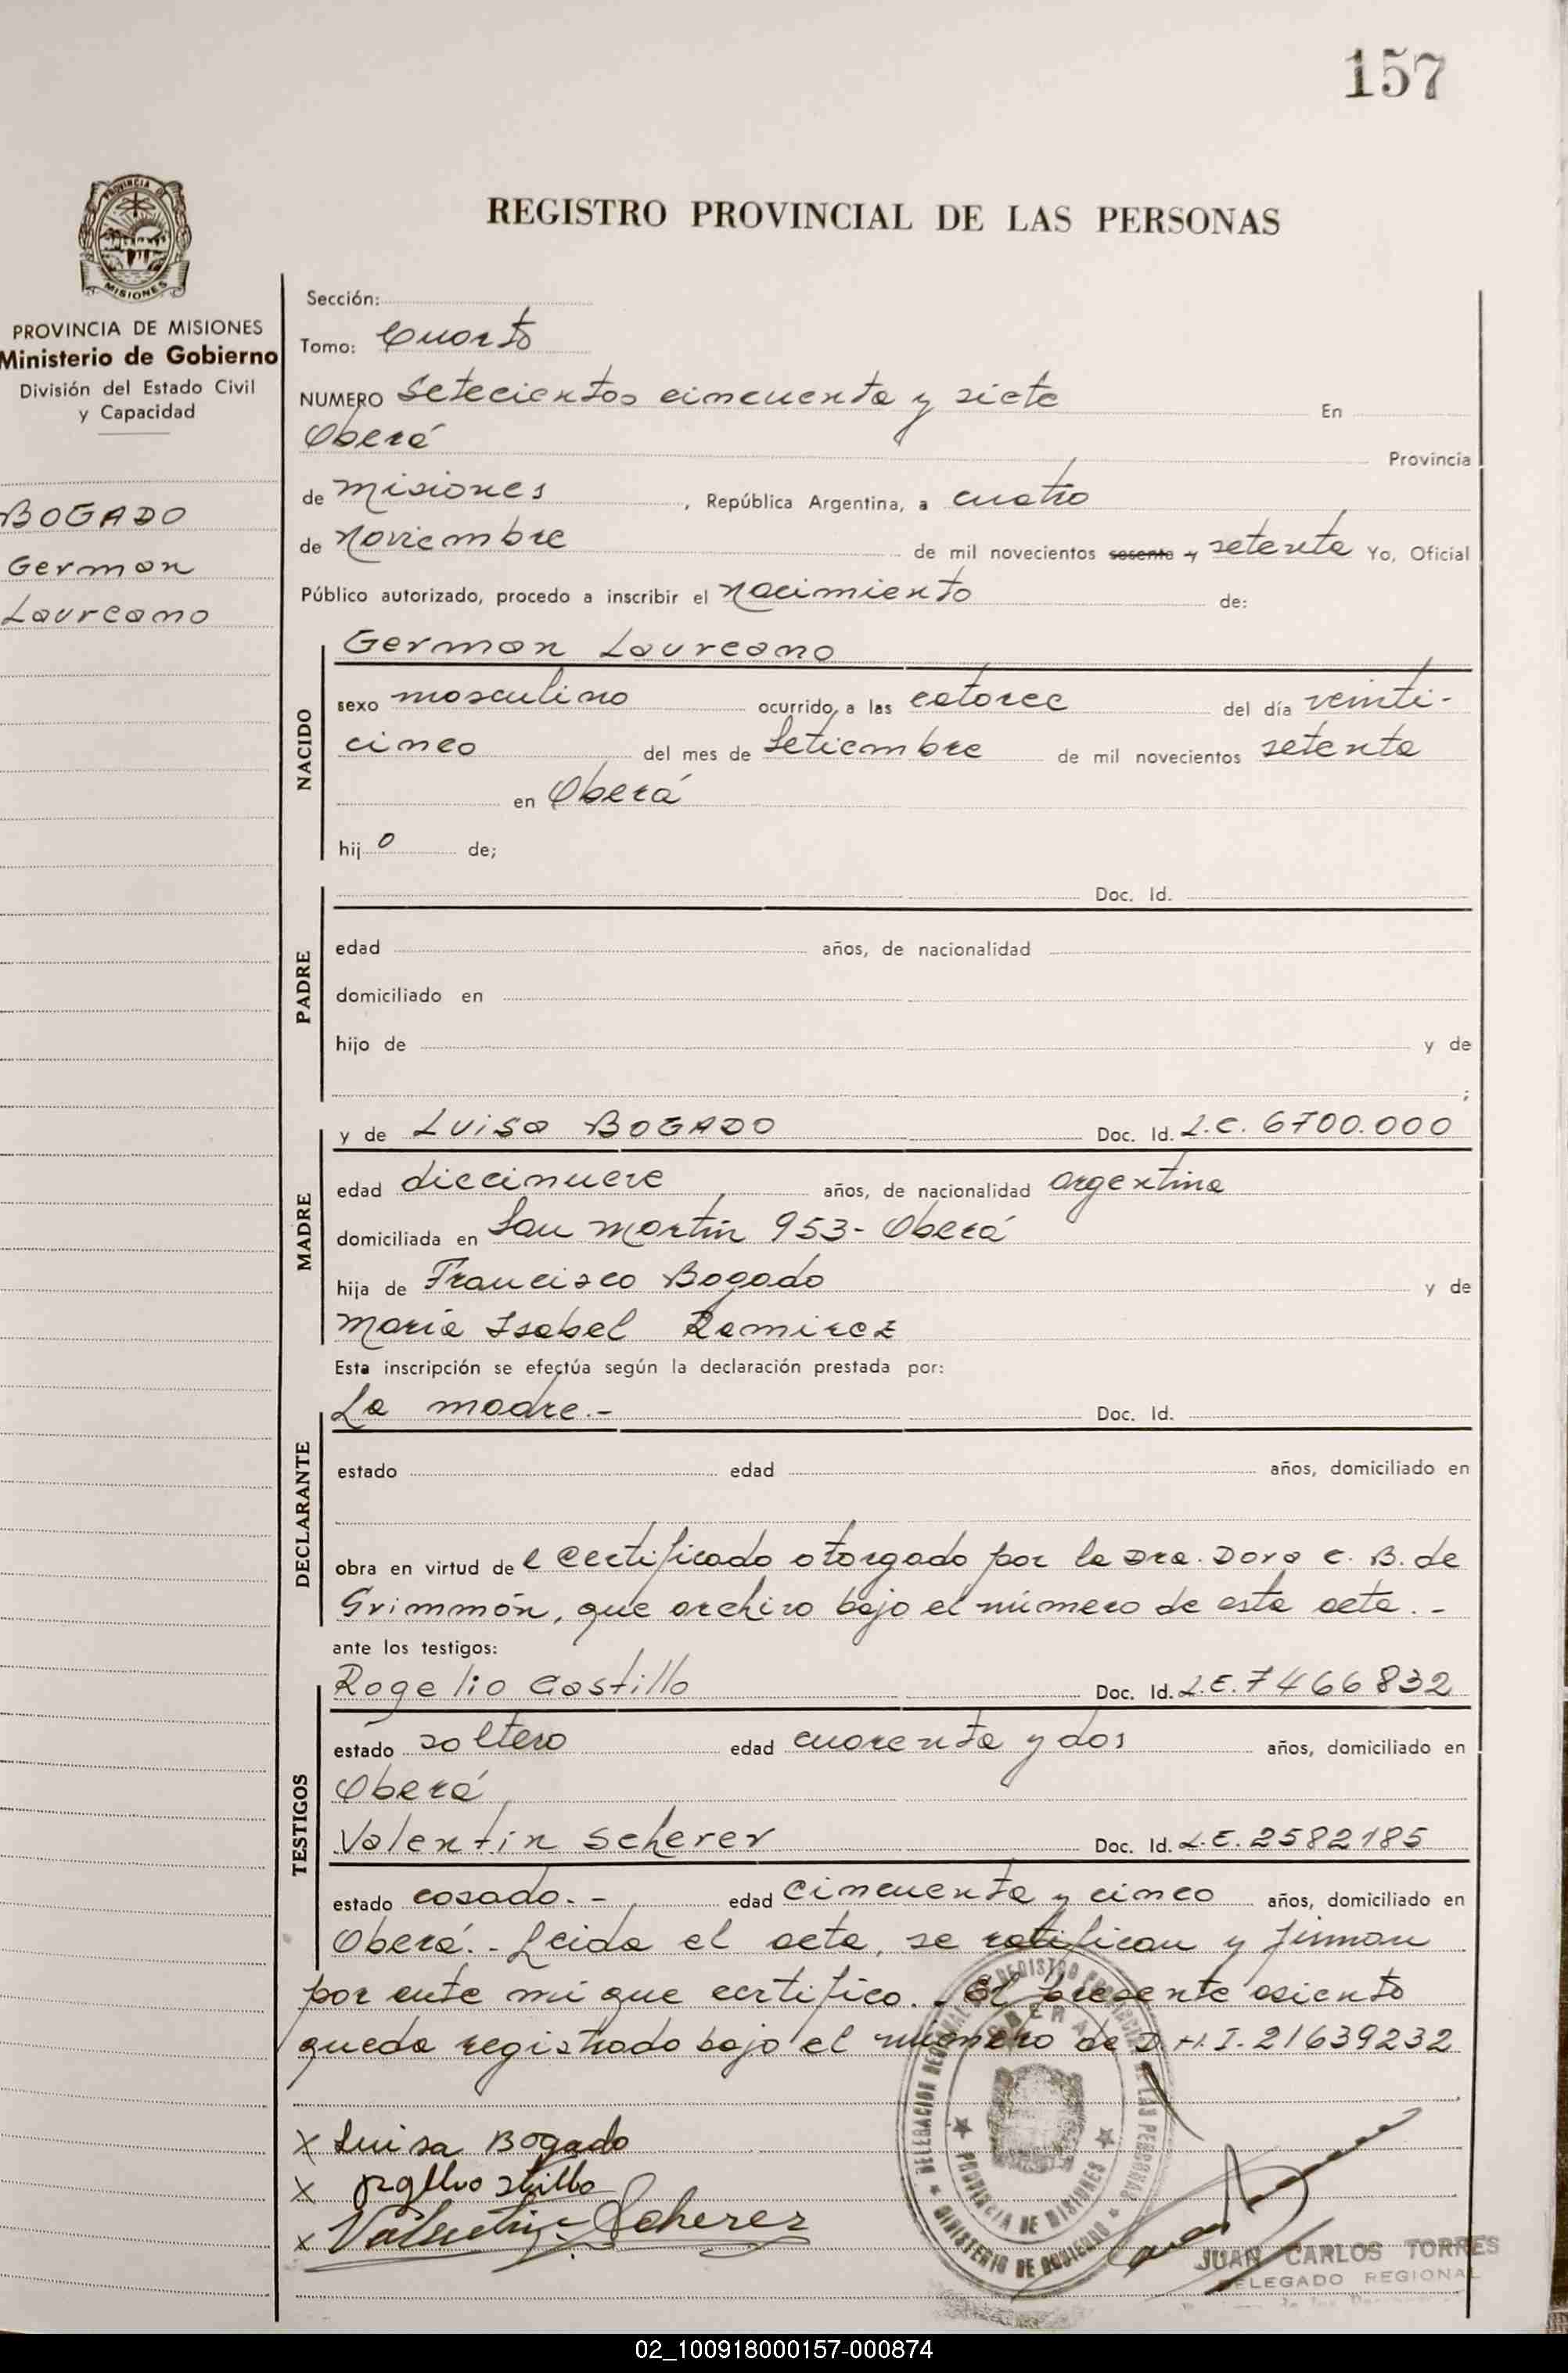 157
PROVINCIA DE
MISIONES
REGISTRO PROVINCIAL DE LAS PERSONAS
PROVINCIA DE MISIONES
Ministerio de Gobierno
División del Estado Civil
y Capacidad
BOGADO
German
Laureano
Sección:
Tomo: Cuarto
NUMERO Setecientos cincuenta y siete En
Oberá Provincia
de Misiones, República Argentina, a cuatro
de Noviembre de mil novecientos sesenta y setenta Yo, Oficial
Público autorizado, procedo a inscribir el Nacimiento de:
NACIDO
German Laureano
sexo masculino ocurrido, a las catorce del día veinti-
cinco del mes de Setiembre de mil novecientos setenta
en Oberá
hij o de;
PADRE
Doc. Id.
edad años, de nacionalidad
domiciliado en
hijo de y de
;
MADRE
y de Luisa BOGADO Doc. Id. L.C. 6700.000
edad diecinueve años, de nacionalidad argentina
domiciliada en San Martín 953- Oberá
hija de Francisco Bogado y de
María Isabel Ramirez
Esta inscripción se efectúa según la declaración prestada por:
DECLARANTE
La madre.- Doc. Id.
estado edad años, domiciliado en
obra en virtud de l certificado otorgado por la Dra. Dora C. B. de
Grimmón, que archivo bajo el número de esta acta.-
ante los testigos:
TESTIGOS
Rogelio Castillo Doc. Id. L.E. 7466832
estado soltero edad cuarenta y dos años, domiciliado en
Oberá
Valentin Scherer Doc. Id. L.E. 2582185
estado casado.- edad cincuenta y cinco años, domiciliado en
Oberá.- Leida el acta, se ratifican y firman
por ante mi que certifico.- El presente asiento
queda registrado bajo el número de D.N.I. 21639232
DELEGACION REGIONAL REGISTRO PROVINCIAL DE LAS PERSONAS
OBERA
PROVINCIA DE MISIONES
MINISTERIO DE GOBIERNO
x Luisa Bogado
x
x Valentin Scherer
JUAN CARLOS TORRES
DELEGADO REGIONAL
02_100918000157-000874